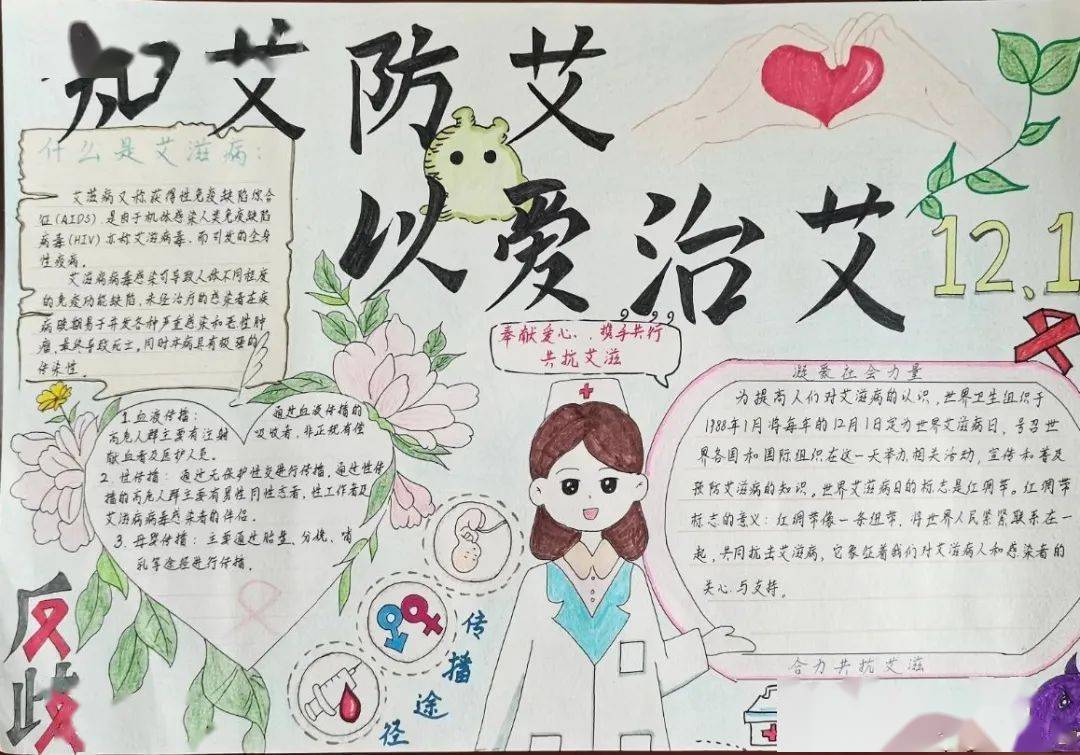 知艾防艾
以爱治艾
12.1
什么是艾滋病：
艾滋病又称获得性免疫缺陷综合
征(AIDS)，是由于机体感染人类免疫缺陷
病毒(HIV)亦称艾滋病毒，而引发的全身
性疾病。
艾滋病病毒感染可导致人体不同程度
的免疫功能缺陷，未经治疗的感染者在疾
病晚期易于并发各种严重感染和恶性肿
瘤，最终导致死亡。同时本病具有极强的
传染性。
1.血液传播： 通过血液传播的
高危人群主要有注射 吸收者，非正规有偿
献血者及医护人员。
2.性传播：通过无保护性交进行传播，通过性传
播的高危人群主要有男性同性恋者，性工作者及
艾滋病病毒感染者的伴侣。
3.母婴传播：主要通过胎盘，分娩，哺
乳等途径进行传播。
反歧
传播途径
奉献爱心，携手共行
共抗艾滋
凝聚社会力量
为提高人们对艾滋病的认识，世界卫生组织于
1988年1月将每年的12月1日定为世界艾滋病日，号召世
界各国和国际组织在这一天举办相关活动，宣传和普及
预防艾滋病的知识。世界艾滋病日的标志是红绸带。红绸带
标志的意义：红绸带像一条纽带，将世界人民紧紧联系在一
起，共同抗击艾滋病，它象征着我们对艾滋病人和感染者的
关心与支持。
合力共抗艾滋